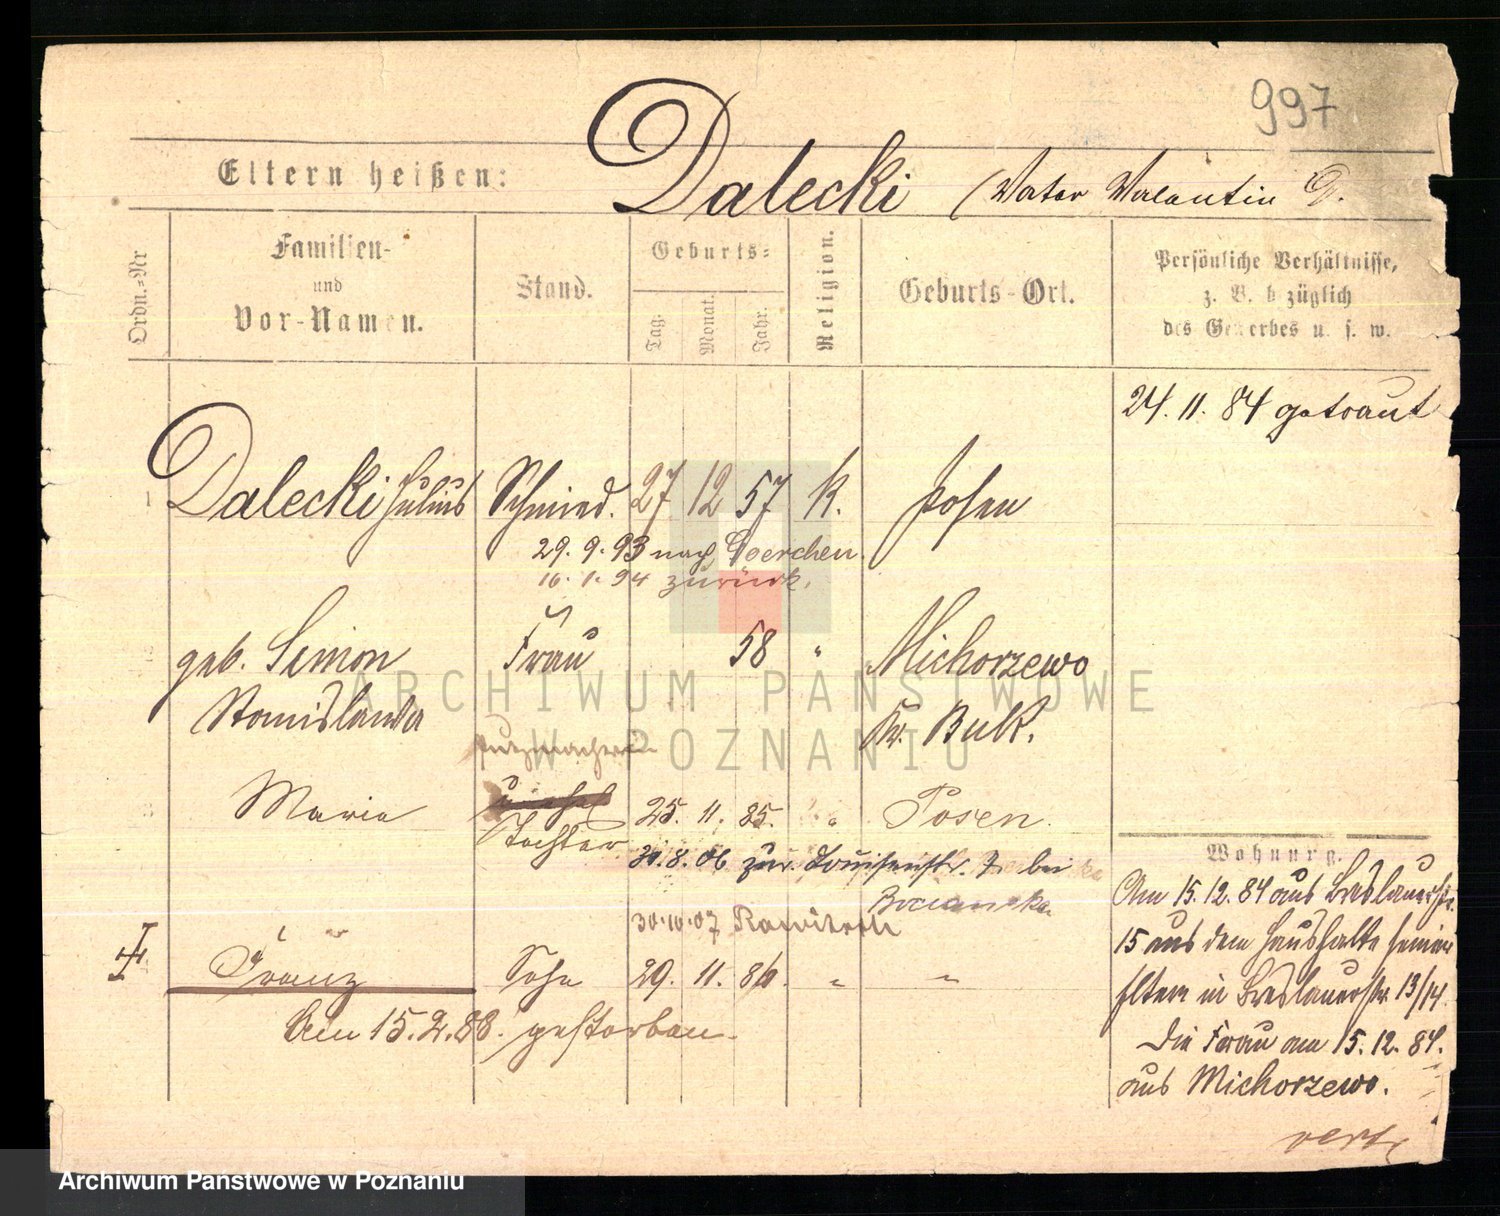 997
Eltern heißen: Dalecki (Vater Valentin D.
Ordn.=Nr
Familien-
und
Vor-Namen.
Stand.
Geburts=
Tag.
Monat.
Jahr.
Religion.
Geburts-Ort.
Persönliche Verhältnisse,
z. B. bezüglich
des Gewerbes u. s. w.
24. 11. 84 getraut
Dalecki Julius Schmied. 27 12 57 k. Posen
29. 9. 93 nach Goerchen.
16. 1. 94 zurück.
geb. Simon Frau 58 " Michorzewo
Stanislawa Kr. Buk.
Putzmacherin
Maria 25. 11. 85. " Posen.
Tochter
30. 8. 06 zur. Louisenstr. 7. bei
Bocianska
30.10.07 Rawitsch
Franz Sohn 29. 11. 86. " "
Am 15. 2. 88. gestorben.
Wohnung.
Am 15. 12. 84 aus Breslauerstr.
15 aus dem Haushalte seiner
Eltern in Breslauerstr. 13/14.
Die Frau am 15. 12. 84.
aus Michorzewo.
vert.
ARCHIWUM PAŃSTWOWE
W POZNANIU
Archiwum Państwowe w Poznaniu